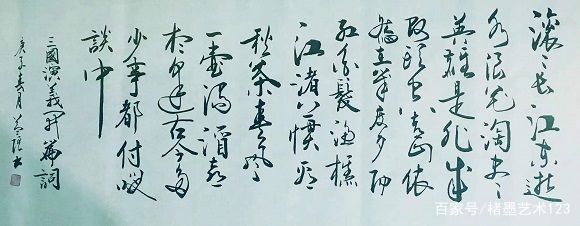 滚々长江东逝
水浪花淘尽
英雄是非成
败转头空青山依
旧在几度夕阳
红白发渔樵
江渚上惯看
秋月春风
一壶浊酒喜
相逢古今多
少事都付笑
談中
三國演義开篇詞
庚子春月书
百家号/楮墨艺术123